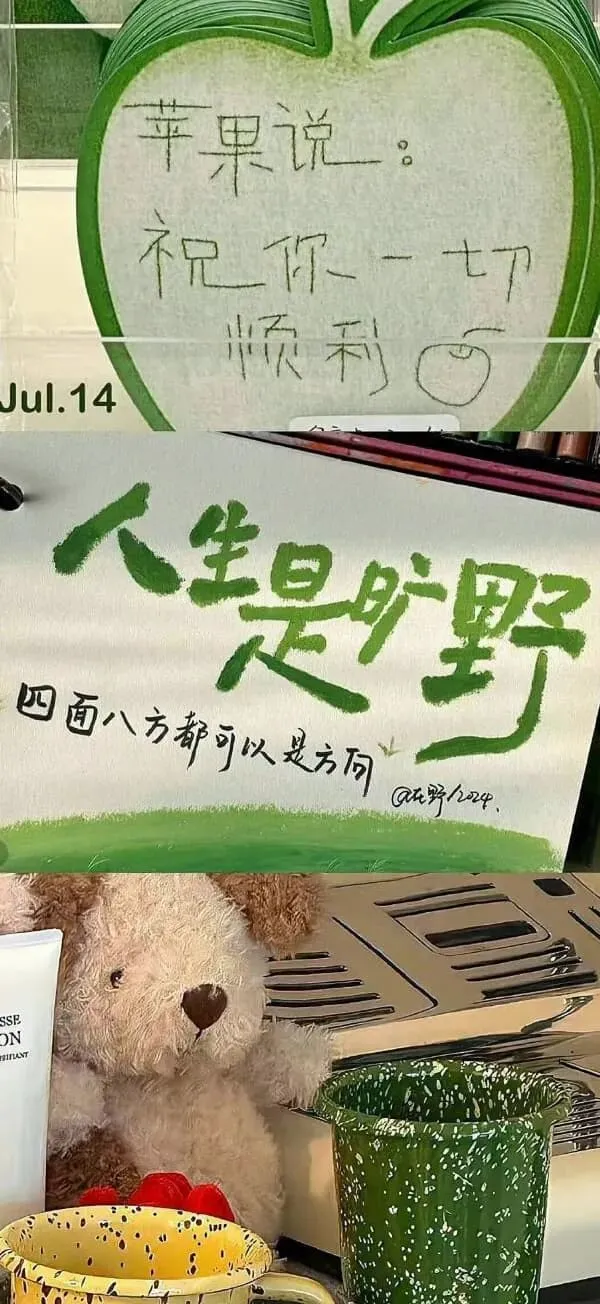 苹果说：
祝你一切
顺利
Jul.14
人生是旷野
四面八方都可以是方向
@在野/2024.
SSE
ON